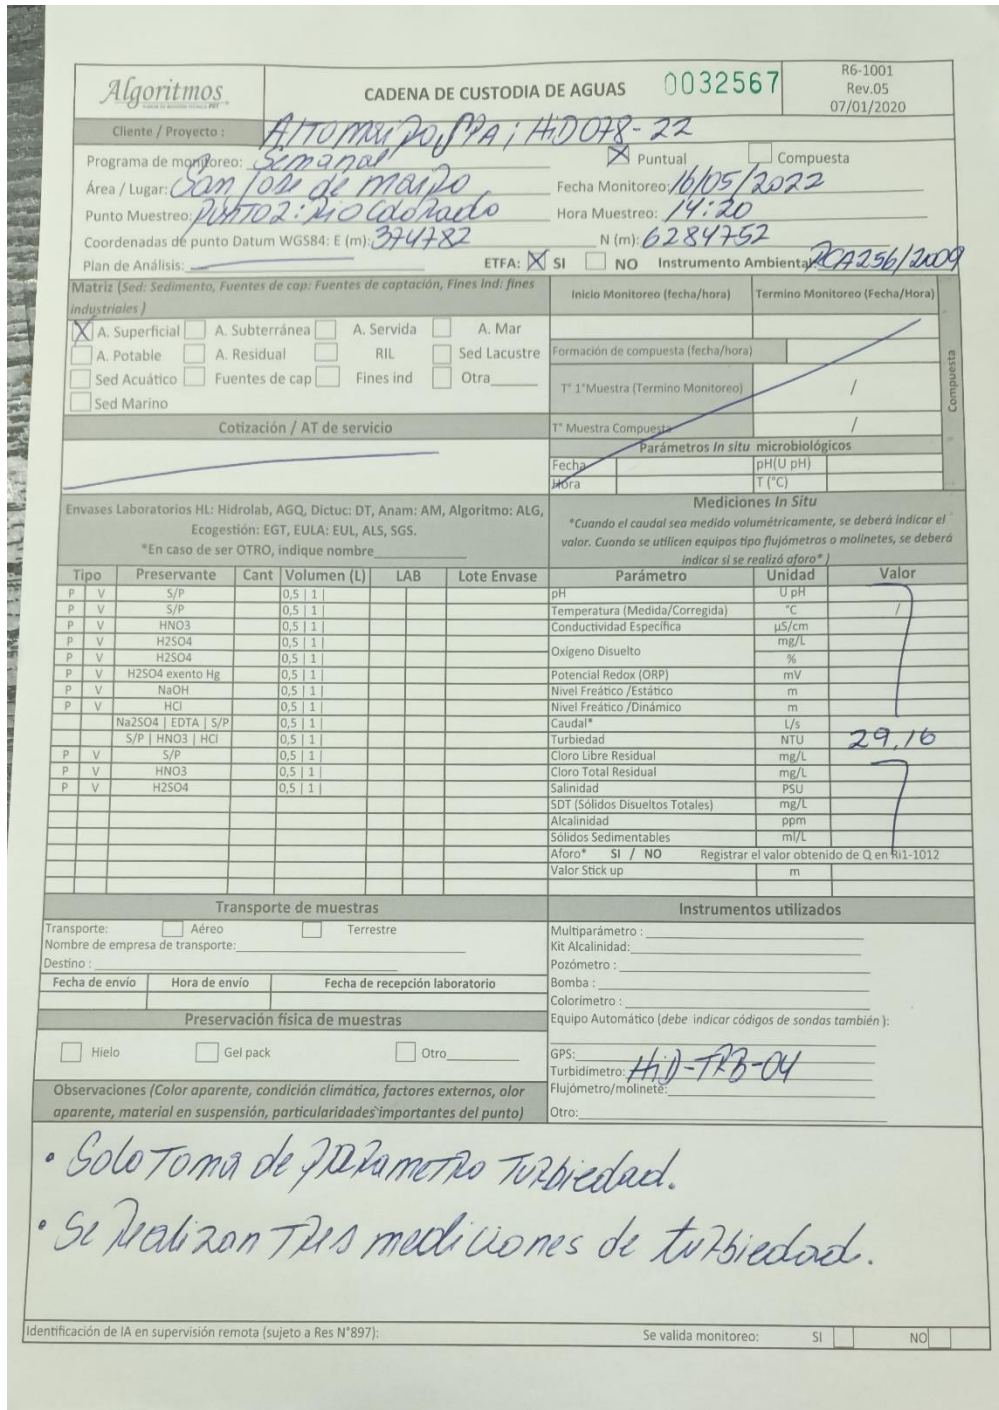 Algoritmos
CADENA DE CUSTODIA DE AGUAS 0032567
R6-1001
Rev.05
07/01/2020
Cliente / Proyecto : Alto Maipo SPA ; HiD 078-22
Programa de monitoreo: Semanal
X Puntual Compuesta
Área / Lugar: San Jose de maipo
Fecha Monitoreo: 16/05/2022
Punto Muestreo: Punto 2: Rio Colorado
Hora Muestreo: 14:20
Coordenadas de punto Datum WGS84: E (m): 374782 N (m): 6284752
Plan de Análisis:
ETFA: X SI NO Instrumento Ambiental: RCA256/2009
Matriz (Sed: Sedimento, Fuentes de cap: Fuentes de captación, Fines Ind: fines industriales )
X A. Superficial A. Subterránea A. Servida A. Mar
A. Potable A. Residual RIL Sed Lacustre
Sed Acuático Fuentes de cap Fines ind Otra____
Sed Marino
Inicio Monitoreo (fecha/hora) Termino Monitoreo (Fecha/Hora)
Formación de compuesta (fecha/hora)
T° 1°Muestra (Termino Monitoreo) /
T° Muestra Compuesta /
Compuesta
Cotización / AT de servicio
Parámetros In situ microbiológicos
Fecha pH(U pH)
Hora T (°C)
Envases Laboratorios HL: Hidrolab, AGQ, Dictuc: DT, Anam: AM, Algoritmo: ALG,
Ecogestión: EGT, EULA: EUL, ALS, SGS.
*En caso de ser OTRO, indique nombre____
Tipo Preservante Cant Volumen (L) LAB Lote Envase
P V S/P 0,5 | 1 |
P V S/P 0,5 | 1 |
P V HNO3 0,5 | 1 |
P V H2SO4 0,5 | 1 |
P V H2SO4 0,5 | 1 |
P V H2SO4 exento Hg 0,5 | 1 |
P V NaOH 0,5 | 1 |
P V HCl 0,5 | 1 |
Na2SO4 | EDTA | S/P 0,5 | 1 |
S/P | HNO3 | HCl 0,5 | 1 |
P V S/P 0,5 | 1 |
P V HNO3 0,5 | 1 |
P V H2SO4 0,5 | 1 |
Mediciones In Situ
*Cuando el caudal sea medido volumétricamente, se deberá indicar el
valor. Cuando se utilicen equipos tipo flujómetros o molinetes, se deberá
indicar si se realizó aforo* )
Parámetro Unidad Valor
pH U pH
Temperatura (Medida/Corregida) °C /
Conductividad Específica µS/cm
Oxígeno Disuelto mg/L
%
Potencial Redox (ORP) mV
Nivel Freático /Estático m
Nivel Freático /Dinámico m
Caudal* L/s
Turbiedad NTU 29,16
Cloro Libre Residual mg/L
Cloro Total Residual mg/L
Salinidad PSU
SDT (Sólidos Disueltos Totales) mg/L
Alcalinidad ppm
Sólidos Sedimentables ml/L
Aforo* SI / NO Registrar el valor obtenido de Q en Ri1-1012
Valor Stick up m
Transporte de muestras
Transporte: Aéreo Terrestre
Nombre de empresa de transporte:
Destino :
Fecha de envío Hora de envío Fecha de recepción laboratorio
Preservación física de muestras
Hielo Gel pack Otro
Instrumentos utilizados
Multiparámetro :
Kit Alcalinidad:
Pozómetro :
Bomba :
Colorímetro :
Equipo Automático (debe indicar códigos de sondas también ):
GPS:
Turbidímetro: HiD-TRB-04
Flujómetro/molinete:
Otro:
Observaciones (Color aparente, condición climática, factores externos, olor
aparente, material en suspensión, particularidades importantes del punto)
• Solo Toma de parametro Turbiedad.
• Se Realizan Tres mediciones de turbiedad.
Identificación de IA en supervisión remota (sujeto a Res N°897):
Se valida monitoreo: SI NO